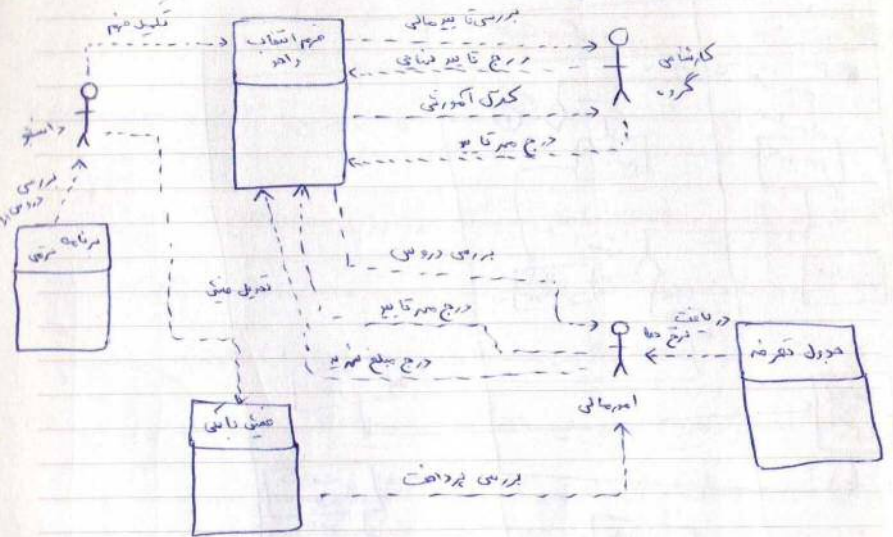 تکمیل فرم
فرم انتخاب
واحد
بررسی تایید مالی
درج تایید نهایی
کنترل آموزشی
درج مهر تایید
کارشناس
گروه
دانشجو
بررسی
برنامه ترمی
تحویل فیش
بررسی دروس
درج مهر تایید
درج مبلغ شهریه
امور مالی
دریافت
نرخ ها
جدول تعرفه
فیش بانکی
بررسی پرداخت